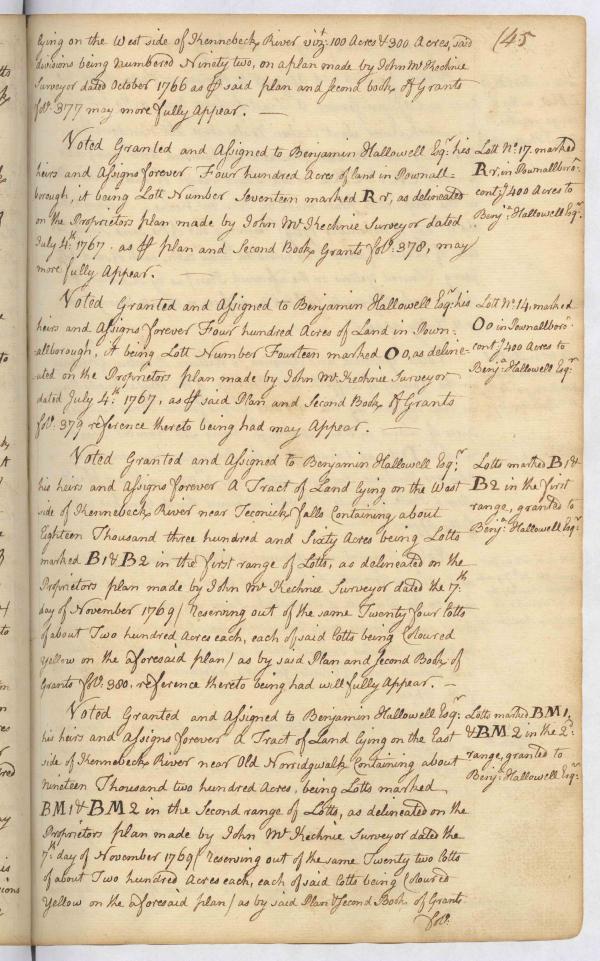 145
lying on the West side of Kennebeck River vizt: 100 Acres & 300 Acres, said
divisions being numbered Ninety two, on a plan made by John McKechnie
Surveyor dated October 1766 as ⅌ said plan and Second book of Grants
fol: 377 may more fully Appear. —
Voted Granted and Assigned to Benjamin Hallowell Esqr: his
heirs and Assigns forever Four hundred Acres of land in Pownall-
borough, it being Lott Number Seventeen marked Rr, as delineated
on the Proprietors plan made by John McKechnie Surveyor dated
July 4th: 1767. as ⅌ plan and Second Book Grants fol: 378, may
more fully Appear. —
Lott No. 17. marked
Rr, in Pownallboro:
contg 400 Acres to
Benja: Hallowell Esqr.
Voted Granted and Assigned to Benjamin Hallowell Esqr: his
heirs and Assigns forever Four hundred Acres of Land in Pown-
allborough, it being Lott Number Fourteen marked Oo, as deline-
ated on the Proprietors plan made by John McKechnie Surveyor
dated July 4th: 1767, as ⅌ said Plan and Second Book of Grants
fol: 379 reference thereto being had may Appear. —
Lott No. 14, marked
Oo in Pownallboro:
contg 400 Acres to
Benja: Hallowell Esqr
Voted Granted and Assigned to Benjamin Hallowell Esqr:
his heirs and Assigns forever A Tract of Land lying on the West
side of Kennebeck River near Teconick falls Containing about
Eighteen Thousand three hundred and Sixty Acres being Lotts
marked B1 & B2 in the first range of Lotts, as delineated on the
Proprietors plan made by John McKechnie Surveyor dated the 7th:
day of November 1769 (reserving out of the same Twenty four Lotts
of about Two hundred Acres each, each of said Lotts being Coloured
yellow on the aforesaid plan) as by said Plan and Second Book of
Grants fol: 380. reference thereto being had will fully Appear. —
Lotts marked B1 &
B2 in the first
range, granted to
Benja: Hallowell Esqr:
Voted Granted and Assigned to Benjamin Hallowell Esqr:
his heirs and Assigns forever A Tract of Land lying on the East
side of Kennebeck River near Old Norridgwalk Containing about
Nineteen Thousand two hundred Acres, being Lotts marked
BM1 & BM2 in the Second range of Lotts, as delineated on the
Proprietors plan made by John McKechnie Surveyor dated the
7th: day of November 1769 (reserving out of the same Twenty two Lotts
of about Two hundred Acres each, each of said Lotts being Coloured
yellow on the aforesaid plan) as by said Plan & Second Book of Grants
fol:
Lotts marked BM1,
& BM2 in the 2d
range, granted to
Benja: Hallowell Esqr: